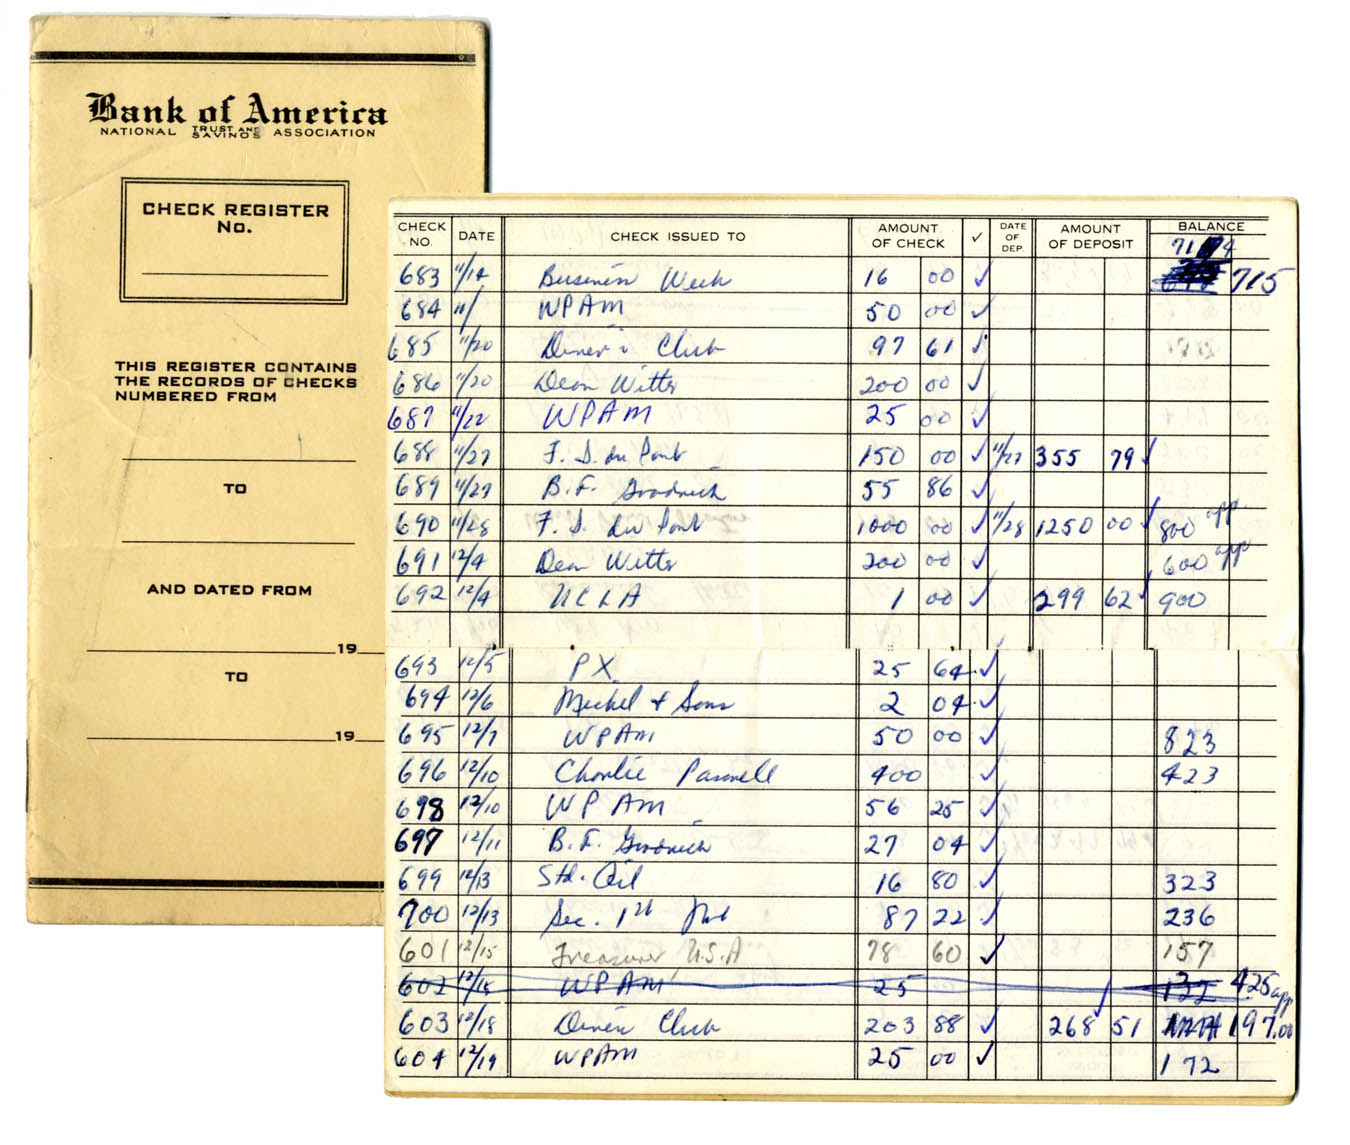 Bank of America
NATIONAL TRUST AND SAVINGS ASSOCIATION
CHECK REGISTER
No.
THIS REGISTER CONTAINS
THE RECORDS OF CHECKS
NUMBERED FROM
TO
AND DATED FROM
19
TO
19
CHECK NO. DATE CHECK ISSUED TO AMOUNT OF CHECK ✓ DATE OF DEP. AMOUNT OF DEPOSIT BALANCE
683 11/14 Business Week 16 00 ✓ 715
684 11/ WPAM 50 00 ✓
685 11/20 Diner's Club 97 61 ✓
686 11/20 Dean Witter 200 00 ✓
687 11/22 WPAM 25 00 ✓
688 11/27 F. I. du Pont 150 00 ✓ 11/27 355 79 ✓
689 11/27 B.F. Goodrich 55 86 ✓
690 11/28 F. I. du Pont 1000 00 ✓ 11/28 1250 00 ✓ 800 app.
691 12/4 Dean Witter 200 00 ✓ 600 app
692 12/4 UCLA 1 00 ✓ 299 62 ✓ 900
693 12/5 PX 25 64 ✓
694 12/6 Michel + Sons 2 04 ✓
695 12/7 WPAM 50 00 ✓ 823
696 12/10 Charlie Pannell 400 ✓ 423
698 12/10 WPAM 56 25 ✓
697 12/11 B.F. Goodrich 27 04 ✓
699 12/13 Std. Oil 16 80 ✓ 323
700 12/13 Sec. 1st Natl 87 22 ✓ 236
601 12/15 Treasurer U.S.A 78 60 ✓ 157
602 12/15 WPAM 25 132 425 app
603 12/18 Diners Club 203 88 ✓ 268 51 ✓ 197.00
604 12/19 WPAM 25 00 ✓ 172